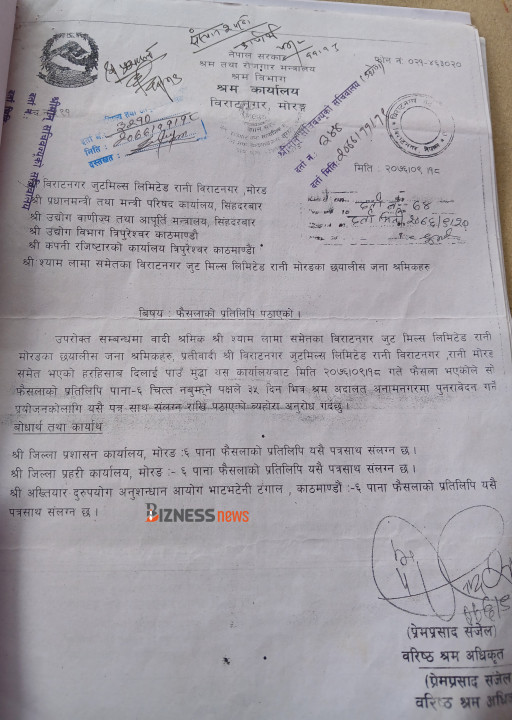 नेपाल सरकार
फोन नं: ०२१-४६३०२०
श्रम तथा रोजगार मन्त्रालय
श्रम विभाग
श्रम कार्यालय
विराटनगर, मोरङ
दर्ता नं. २४४
३२९०
मिति : २०६६।९।१८
दस्तखत :
मिति : २०६६।०९।१८
दर्ता नं:- ६४
दर्ता मिति २०६६/९/२०
श्री विराटनगर जुटमिल्स लिमिटेड रानी विराटनगर ,मोरड
श्री प्रधानमन्त्री तथा मन्त्री परिषद कार्यालय, सिंहदरबार
श्री उद्योग वाणीज्य तथा आपूर्ति मन्त्रालय, सिंहदरबार
श्री उद्योग विभाग त्रिपुरेश्वर काठमाण्डौ
श्री कपनी रजिष्टारको कार्यालय त्रिपुरेश्वर काठमाण्डौ
श्री श्याम लामा समेतका विराटनगर जुट मिल्स लिमिटेड रानी मोरडका छयालीस जना श्रमिकहरु
बिषय : फैसलाको प्रतिलिपि पठाएको ।
उपरोक्त सम्बन्धमा वादी श्रमिक श्री श्याम लामा समेतका विराटनगर जुट मिल्स लिमिटेड रानी
मोरडका छयालीस जना श्रमिकहरु, प्रतीवादी श्री विराटनगर जुटमिल्स लिमिटेड रानी विराटनगर, रानी मोरड
समेत भएको हरहिसाब दिलाई पाउँ मुद्धा यस कार्यालयबाट मिति २०६६।०९।१८ गते फैसला भएकोले सो
फैसलाको प्रतिलिपि पाना-६ चित्त नबुझ्ने पक्षले ३५ दिन भित्र श्रम अदालत अनामनगरमा पुनरावेदन गर्ने
प्रयोजनकोलागि यसै पत्र साथ संलग्न राखि पठाएको व्यहोरा अनुरोध गर्दछु ।
बोधार्थ तथा कार्यार्थ
श्री जिल्ला प्रशासन कार्यालय, मोरड :६ पाना फैसलाको प्रतिलिपि यसै पत्रसाथ संलग्न छ ।
श्री जिल्ला प्रहरी कार्यालय, मोरड :- ६ पाना फैसलाको प्रतिलिपि यसै पत्रसाथ संलग्न छ ।
श्री अख्तियार दुरुपयोग अनुशन्धान आयोग भाटभटेनी टंगाल , काठमाण्डौं :-६ पाना फैसलाको प्रतिलिपि यसै
पत्रसाथ संलग्न छ ।
BIZNESS news
(प्रेमप्रसाद संजेल)
वरिष्ठ श्रम अधिकृत
(प्रेमप्रसाद संजेल
वरिष्ठ श्रम